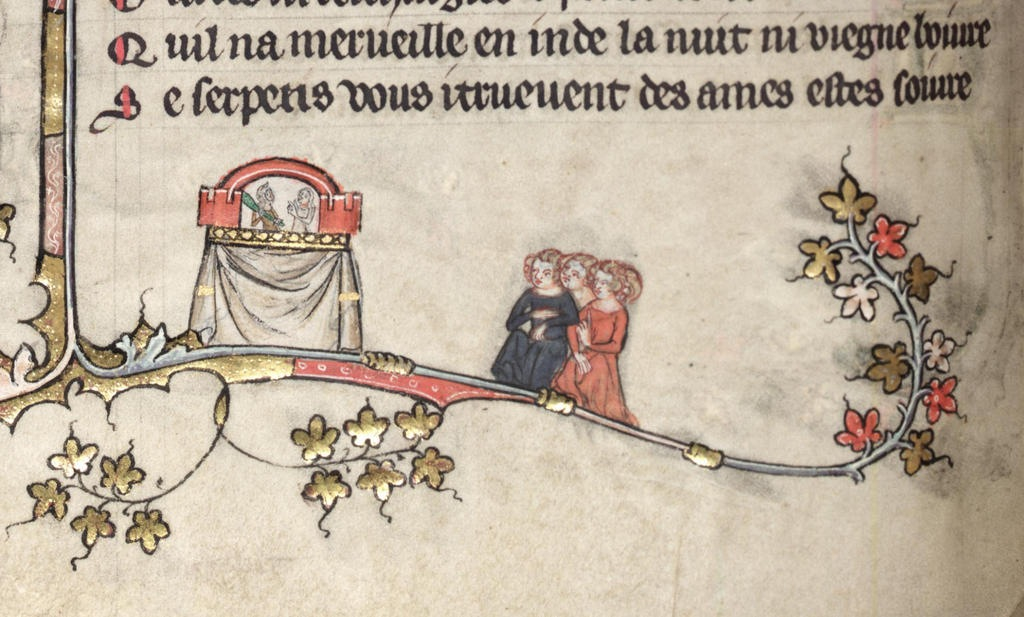 Q uil na merueille en inde la nuit ni viegne boiure
S e serpens vous itrueuent des ames estes soiure